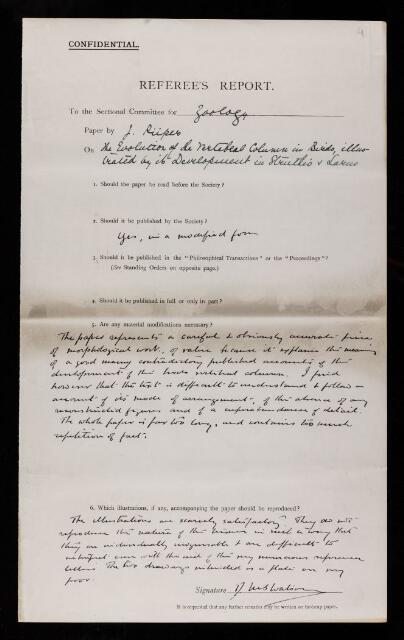 4
CONFIDENTIAL.
REFEREE'S REPORT.
To the Sectional Committee for Zoology
Paper by J. Piiper
On the Evolution of the Vertebral Column in Birds, illus-
trated by its Development in Struthio & Larus
1. Should the paper be read before the Society?
2. Should it be published by the Society?
Yes, in a modified form
3. Should it be published in the "Philosophical Transactions" or the "Proceedings"?
(See Standing Orders on opposite page.)
4. Should it be published in full or only in part?
5. Are any material modifications necessary?
The paper represents a careful & obviously accurate piece
of morphological work, of value because it explains the meaning
of a good many contradictory published accounts of the
development of the birds vertebral column. I find
however that the text is difficult to understand & follow on
account of its mode of arrangement, of the absence of any
reconstructed figures and of a superabundance of detail.
The whole paper is far too long, and contains too much
repetition of fact.
6. Which illustrations, if any, accompanying the paper should be reproduced?
The illustrations are scarcely satisfactory. They do not
reproduce the nature of the tissues in such a way that
they are individually recognisable & are difficult to
interpret even with the aid of the very numerous reference
letters. The two drawings intended as a plate are very
poor.
Signature D M S Watson
It is requested that any further remarks may be written on foolscap paper.